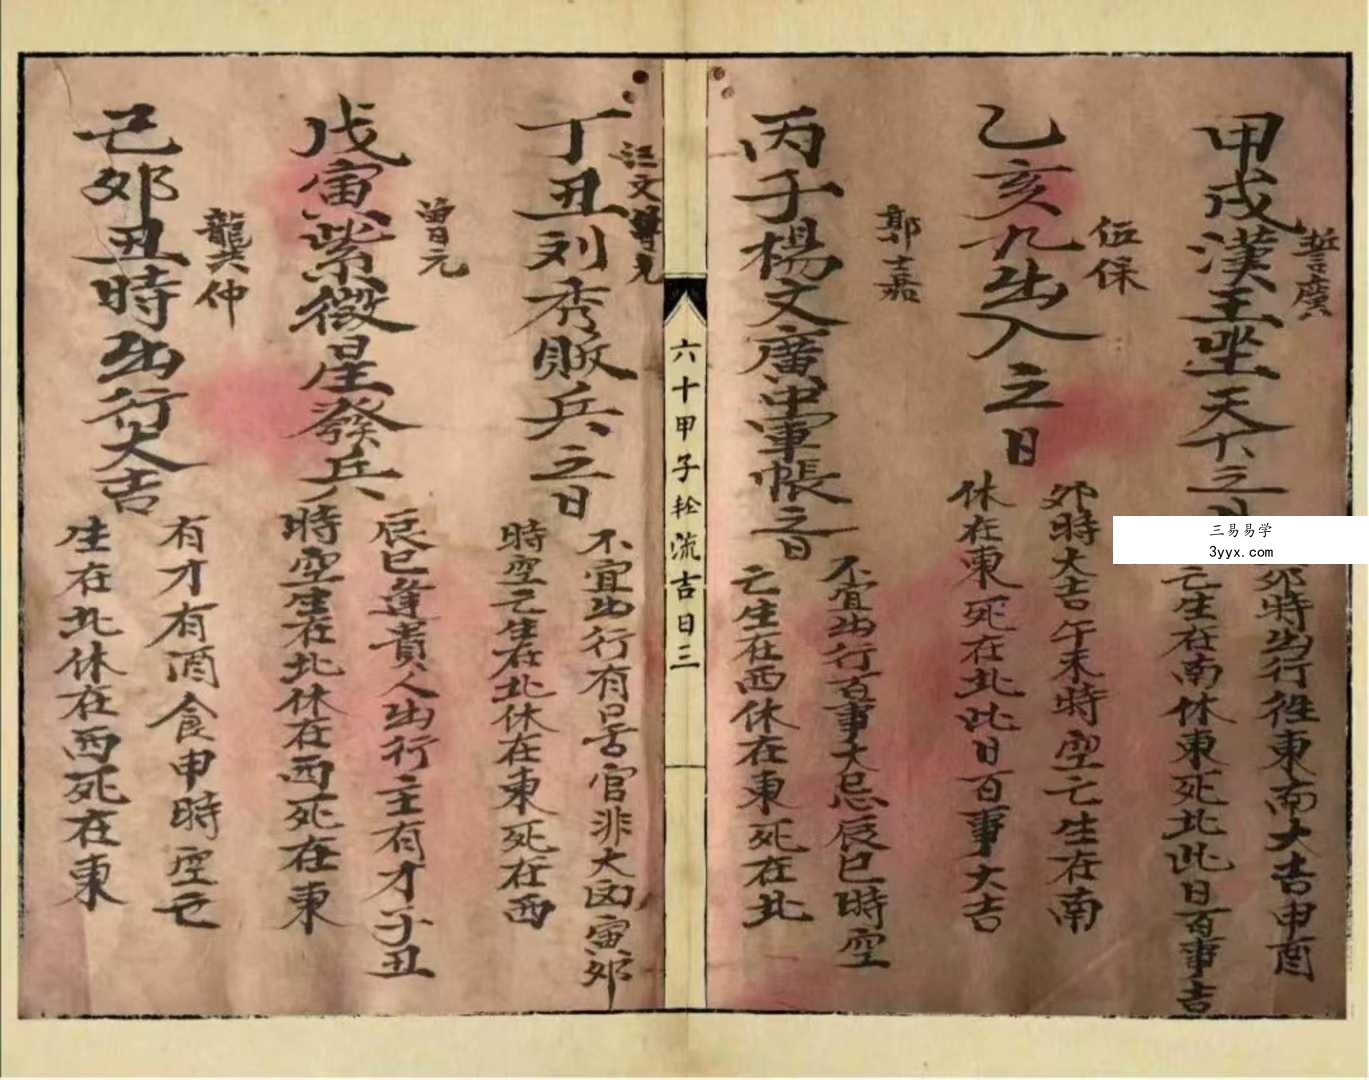 甲戌漢王坐天下之日
誓廣
卯時出行往東南大吉申酉
亡生在南休東死北此日百事吉
乙亥九出入之日
伍保
卯時大吉午未時空亡生在南
休在東死在北此日百事大吉
丙子楊文廣中軍帳之日
郭士嘉
不宜出行百事大忌辰巳時空
亡生在西休在東死在北
六十甲子轮流吉日三
丁丑刘秀敗兵之日
汪文
不宜出行有口舌官非大凶寅卯
時空亡生在北休在東死在西
戊寅紫微星發兵
曾元
辰巳逢貴人出行主有才子丑
時空生在北休在西死在東
己卯丑時出行大吉
龍共仲
有才有酒食申時空亡
生在北休在西死在東
三易易学
3yyx.com